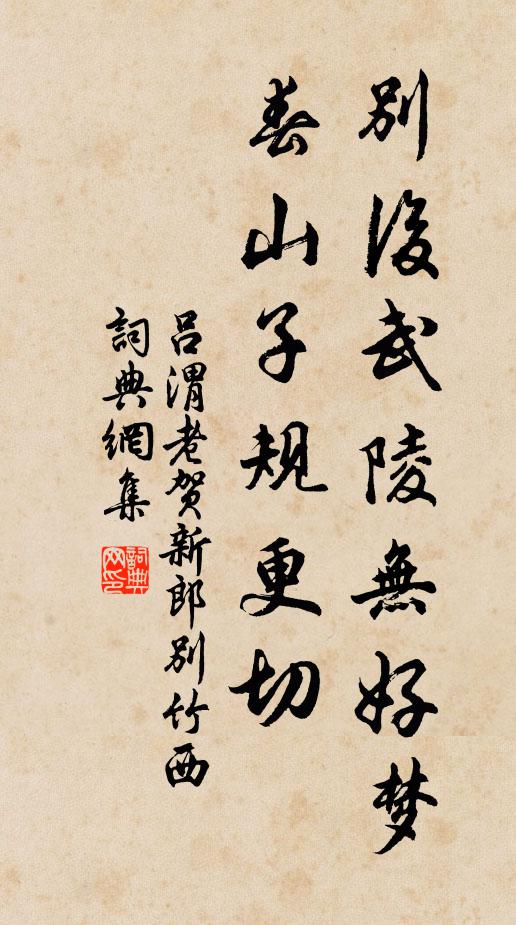 別後武陵無好梦
春山子規更切
吕渭老贺新郎别竹西
詞典網集
詞典网印